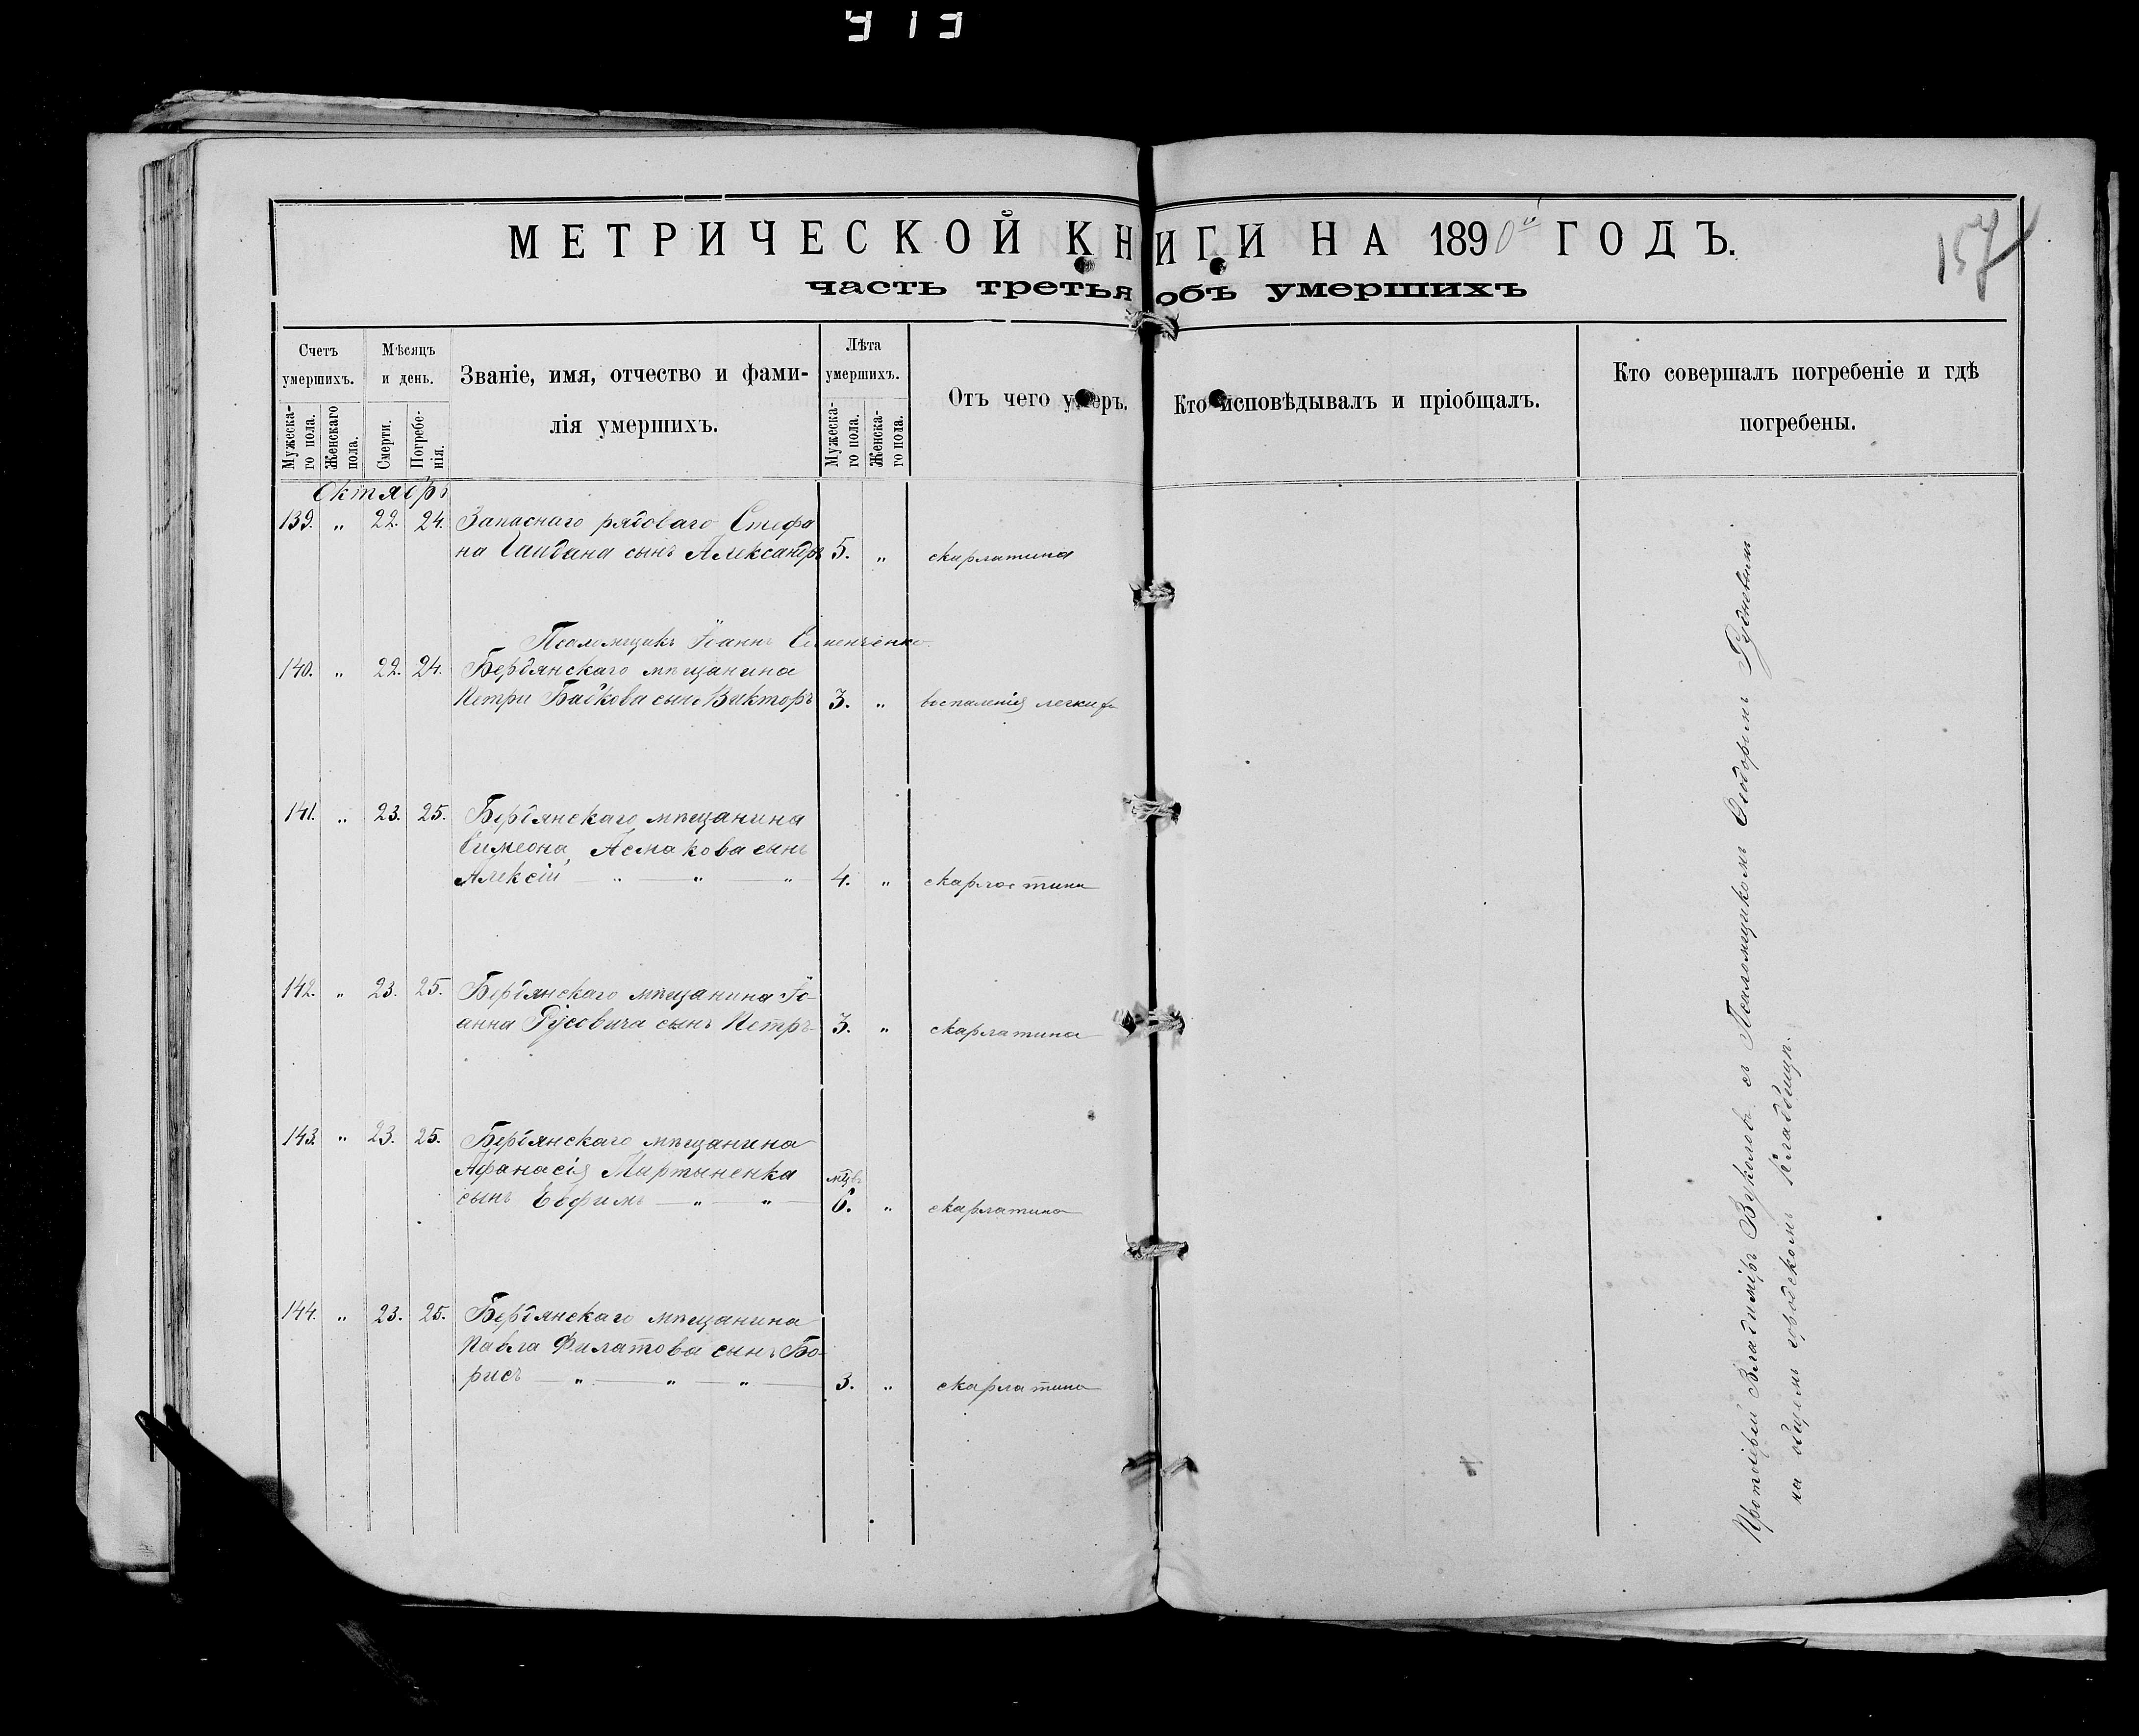 МЕТРИЧЕСКОЙ КНИГИ НА 1890й ГОДЪ.
157
часть третья объ умершихъ
Счетъ умершихъ.
Мѣсяцъ и день.
Званіе, имя, отчество и фами-
лія умершихъ.
Лѣта умершихъ.
Отъ чего умеръ.
Кто исповѣдывалъ и пріобщалъ.
Кто совершалъ погребеніе и гдѣ
погребены.
Мужеска-
го пола.
Женскаго
пола.
Смерти.
Погребе-
нія.
Мужеска-
го пола.
Женска-
го пола.
Октябрь
139. „ 22. 24. Запаснаго рядоваго Стефа
на сынъ Александръ 5. „ скарлатина
Псаломщикъ Іоаннъ
140. „ 22. 24. Бердянскаго мѣщанина
Петра сынъ Викторъ 3. „ воспаленія легкихъ
141. „ 23. 25. Бердянскаго мѣщанина
Симеона Асмакова сынъ
Алексій — „ — „ — „ 4. „ скарлатина
142. „ 23. 25. Бердянскаго мѣщанина Іо-
анна Русовича сынъ Петръ 3. „ скарлатина
143. „ 23. 25. Бердянскаго мѣщанина
Афанасія Мартыненка мѣц.
сынъ Евфимъ — „ — „ — 6. „ скарлатина
144. „ 23. 25. Бердянскаго мѣщанина
Павла Филатова сынъ Бо-
рисъ — „ — „ — „ — 3. „ скарлатина
Протоіерей Владиміръ Вуколовъ съ Псаломщикомъ Ѳеодоромъ Рудневымъ
на общемъ городскомъ кладбищѣ.